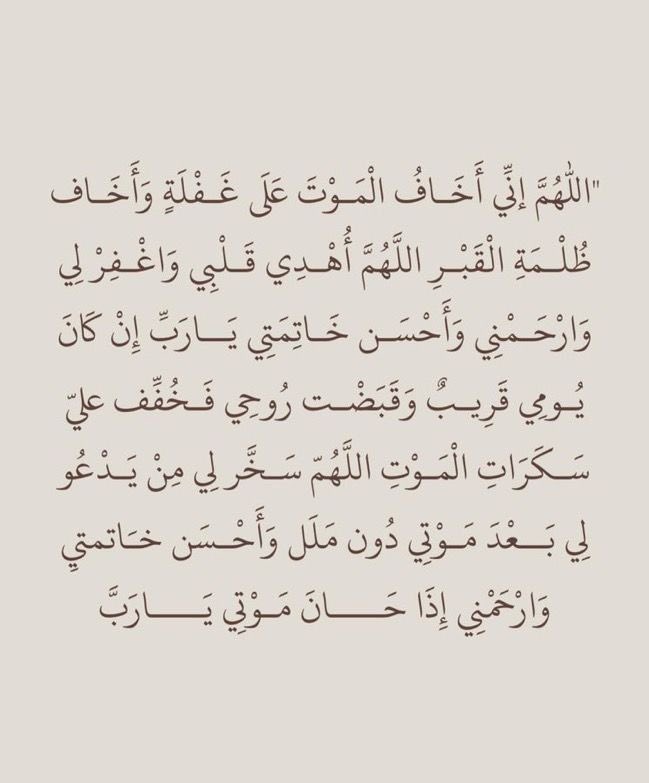 "اللّٰهُمَّ إنِّي أَخَـافُ الْمَـوْتَ عَلَى غَـفْلَةٍ وَأَخَـاف
ظُلْـمَةِ الْقَبْـرِ اللَّهُمَّ أُهْـدِي قَـلْبِي وَاغْـفِرْ لِي
وَارْحَـمْنِي وَأَحْسَـن خَـاتِمَتِي يَـارَبِّ إِنْ كَانَ
يُـومِي قَرِيـبٌ وَقَبَضْـت رُوحِي فَـخُفِّف عليّ
سَـكَرَاتِ الْمَـوْتِ اللَّهُمّ سَـخَّر لِي مِنْ يَـدْعُو
لِي بَـعْدَ مَـوْتِي دُون مَلَل وَأَحْـسَن خـَاتمتيِ
وَارْحَمْنِي إِذَا حَـانَ مَـوْتِي يَـارَبَّ